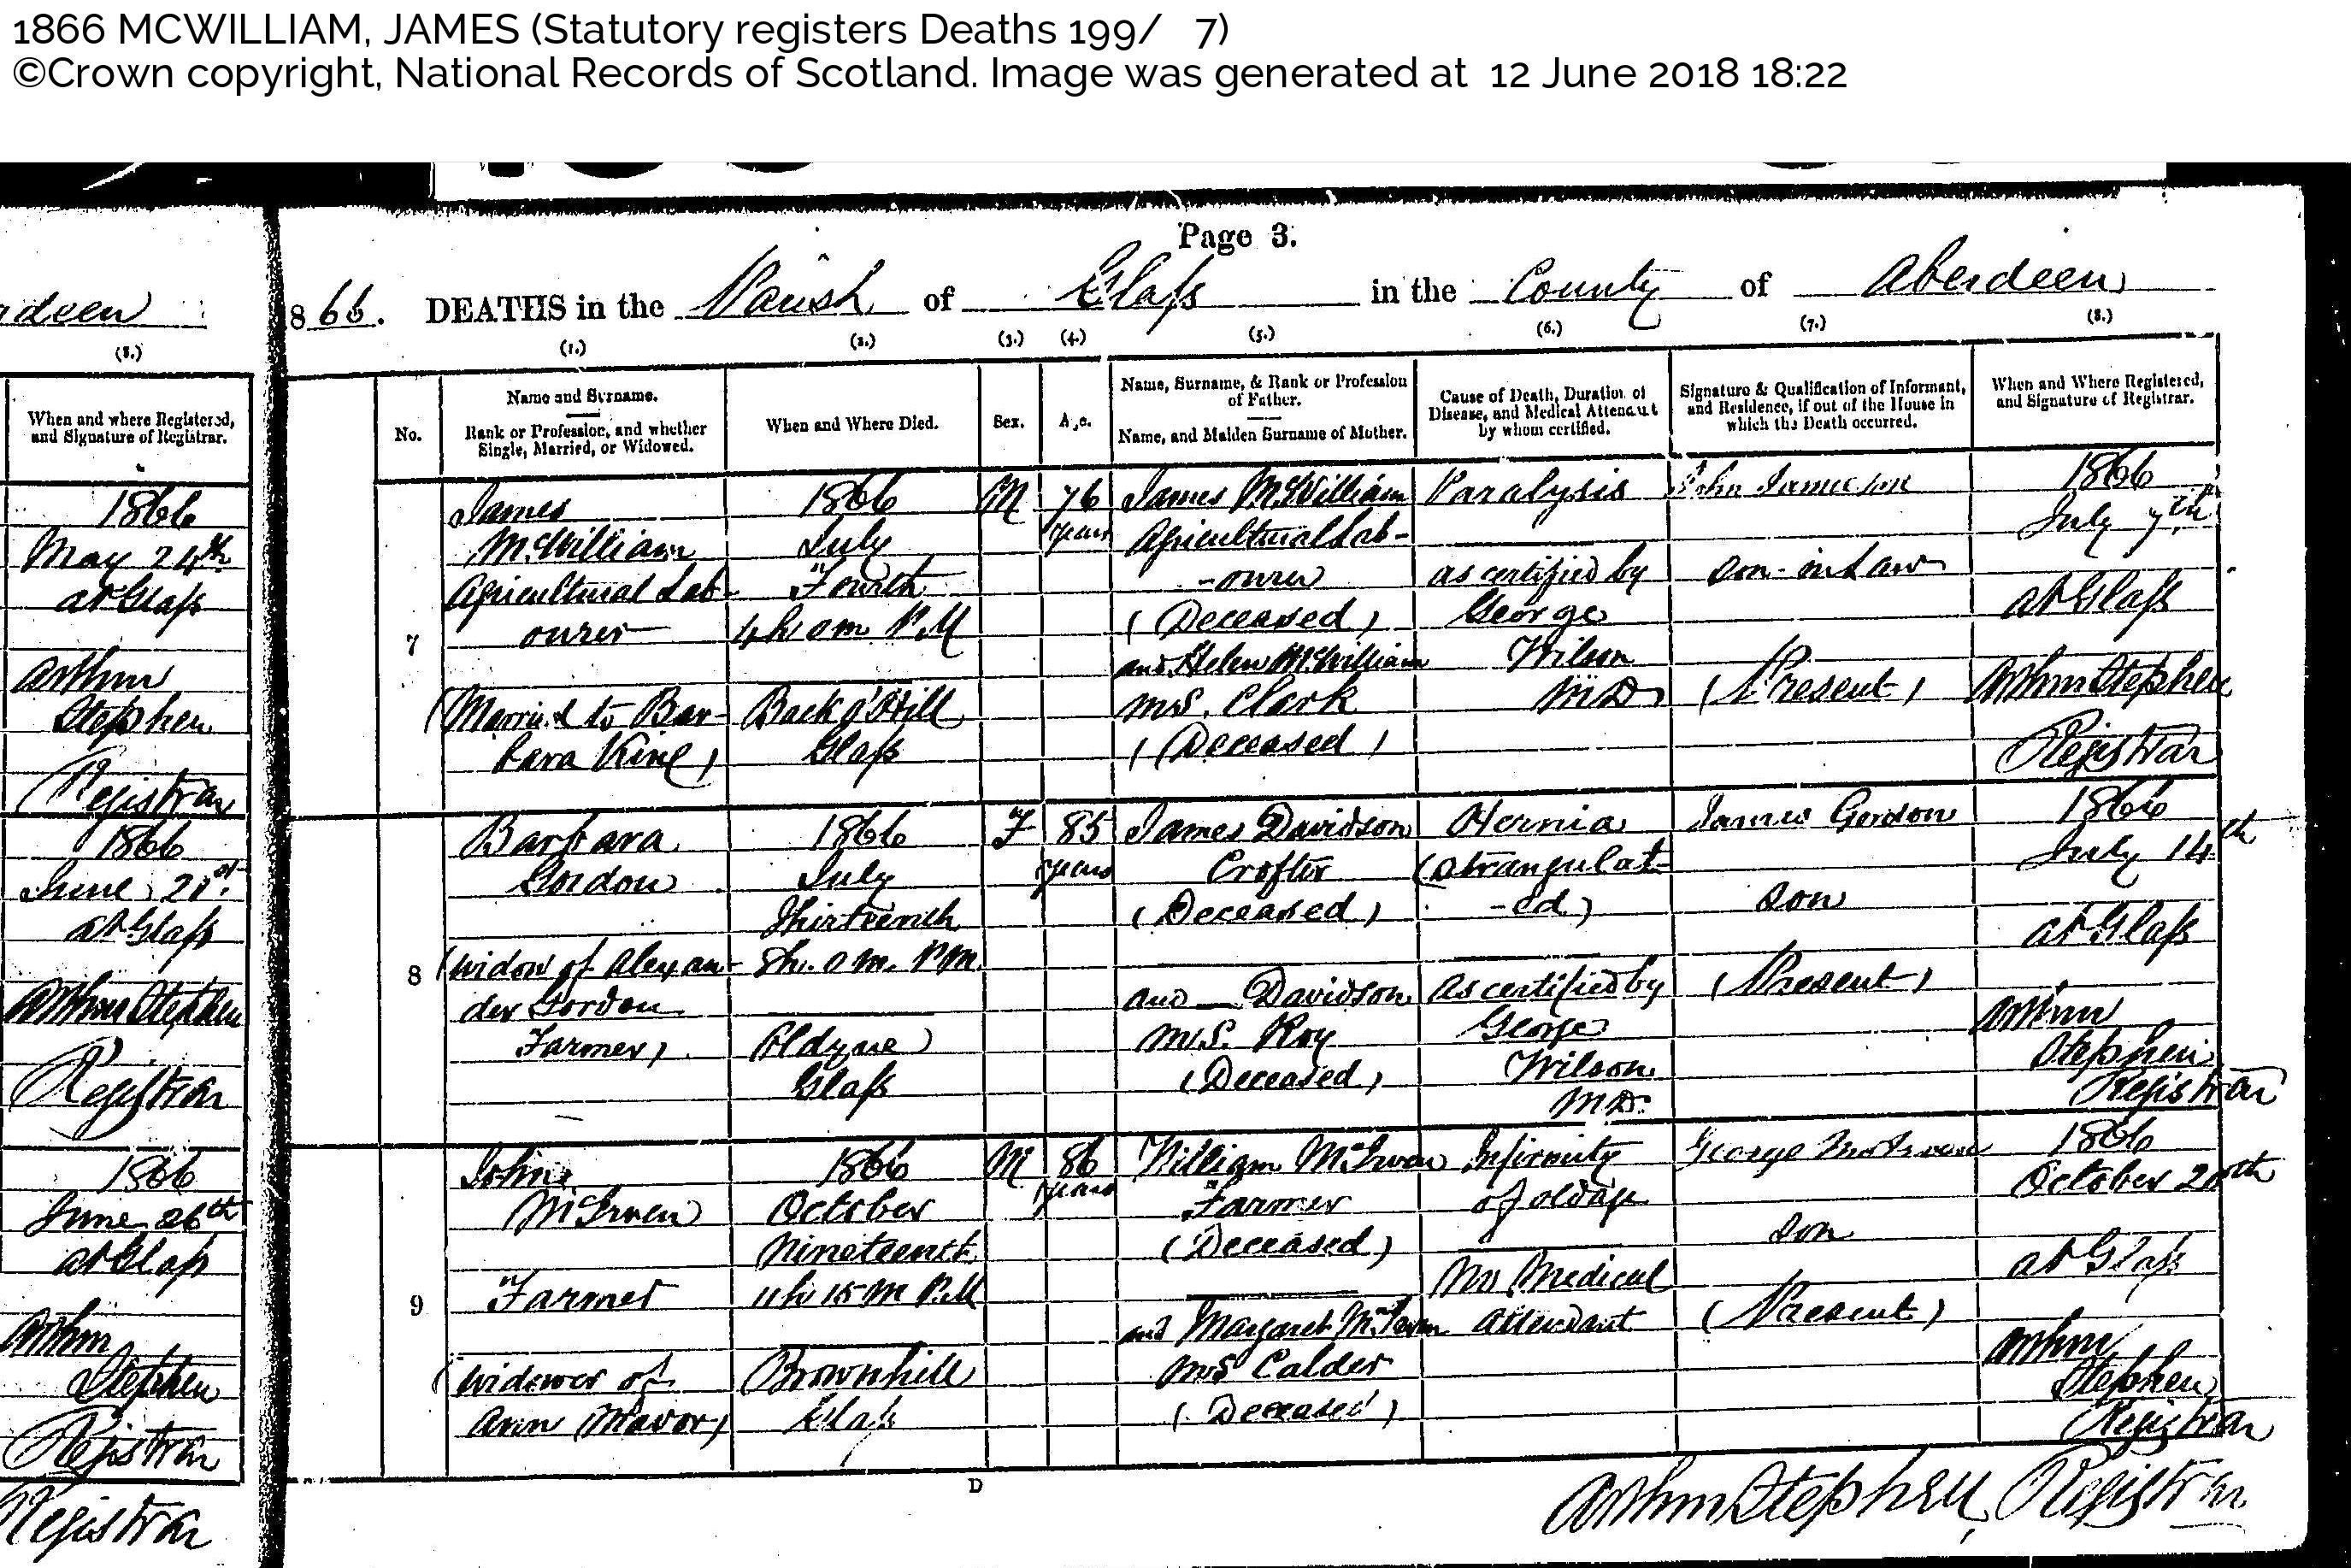 1866 MCWILLIAM, JAMES (Statutory registers Deaths 199/ 7)
©Crown copyright, National Records of Scotland. Image was generated at 12 June 2018 18:22
Page 3.
rdeen
(8.)
When and where Registered,
and Signature of Registrar.
1866
May 24th
at Glaſs
Arthur
Stephen
Registrar
1866
June 21st
at Glaſs
Arthur Stephen
Registrar
1866
June 26th
at Glaſs
Arthur
Stephen
Registrar
Registrar
866. DEATHS in the Parish of Glaſs in the County of Aberdeen
(1.) (2.) (3.) (4.) (5.) (6.) (7.) (8.)
No.
Name and Surname.
Rank or Profession, and whether
Single, Married, or Widowed.
When and Where Died.
Sex.
Age.
Name, Surname, & Rank or Profession
of Father.
Name, and Maiden Surname of Mother.
Cause of Death, Duration of
Disease, and Medical Attendant
by whom certified.
Signature & Qualification of Informant,
and Residence, if out of the House in
which the Death occurred.
When and Where Registered,
and Signature of Registrar.
7
James
McWilliam
Agricultural Lab-
ourer
(Married to Bar-
bara King)
1866
July
Fourth
4h 0m P.M
Back o' Hill
Glaſs
M
76
years
James McWilliam
Agricultural Lab-
-ourer
(Deceased)
and Helen McWilliam
M.S. Clark
(Deceased)
Paralysis
as certified by
George
Wilson
M.D
John
Son-in-Law
(Present)
1866
July 7th
at Glaſs
Arthur Stephen
Registrar
8
Barbara
Gordon
(Widow of Alexan-
der Gordon
Farmer)
1866
July
Thirteenth
8h. 0m. P.M.
Glaſs
F
85
years
James Davidson
Crofter
(Deceased)
and — Davidson
M.S. Roy
(Deceased)
Hernia
(Strangulat-
-ed)
As certified by
George
Wilson
M.D.
James Gordon
Son
(Present)
1866
July 14th
at Glaſs
Arthur
Stephen
Registrar
9
John
Farmer
(Widower of
Ann Mavor)
1866
October
Nineteenth
11h 15m P.M
Brownhill
Glaſs
M
86
years
William
Farmer
(Deceased)
and Margaret
M.S Calder
(Deceased)
Infirmity
of old age
No Medical
Attendant
George
Son
(Present)
1866
October 20th
at Glaſs
Arthur
Stephen
Registrar
D
Arthur Stephen, Registrar